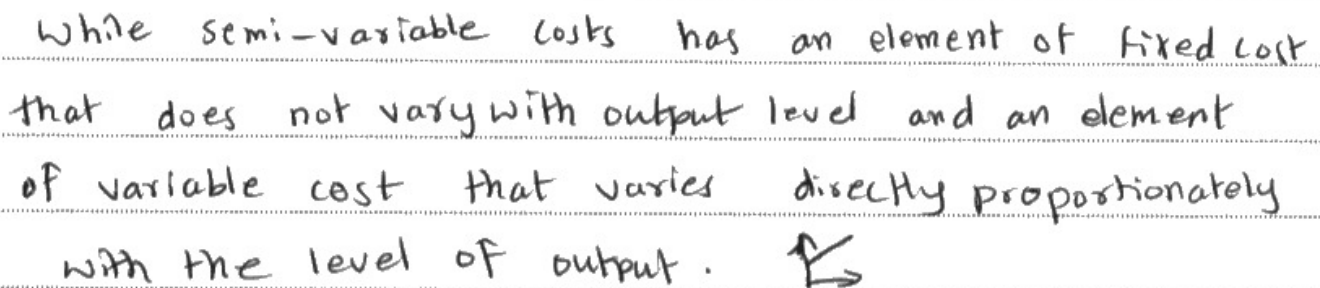 While semi-variable costs has an element of fixed cost
that does not vary with output level and an element
of variable cost that varies directly proportionately
with the level of output.